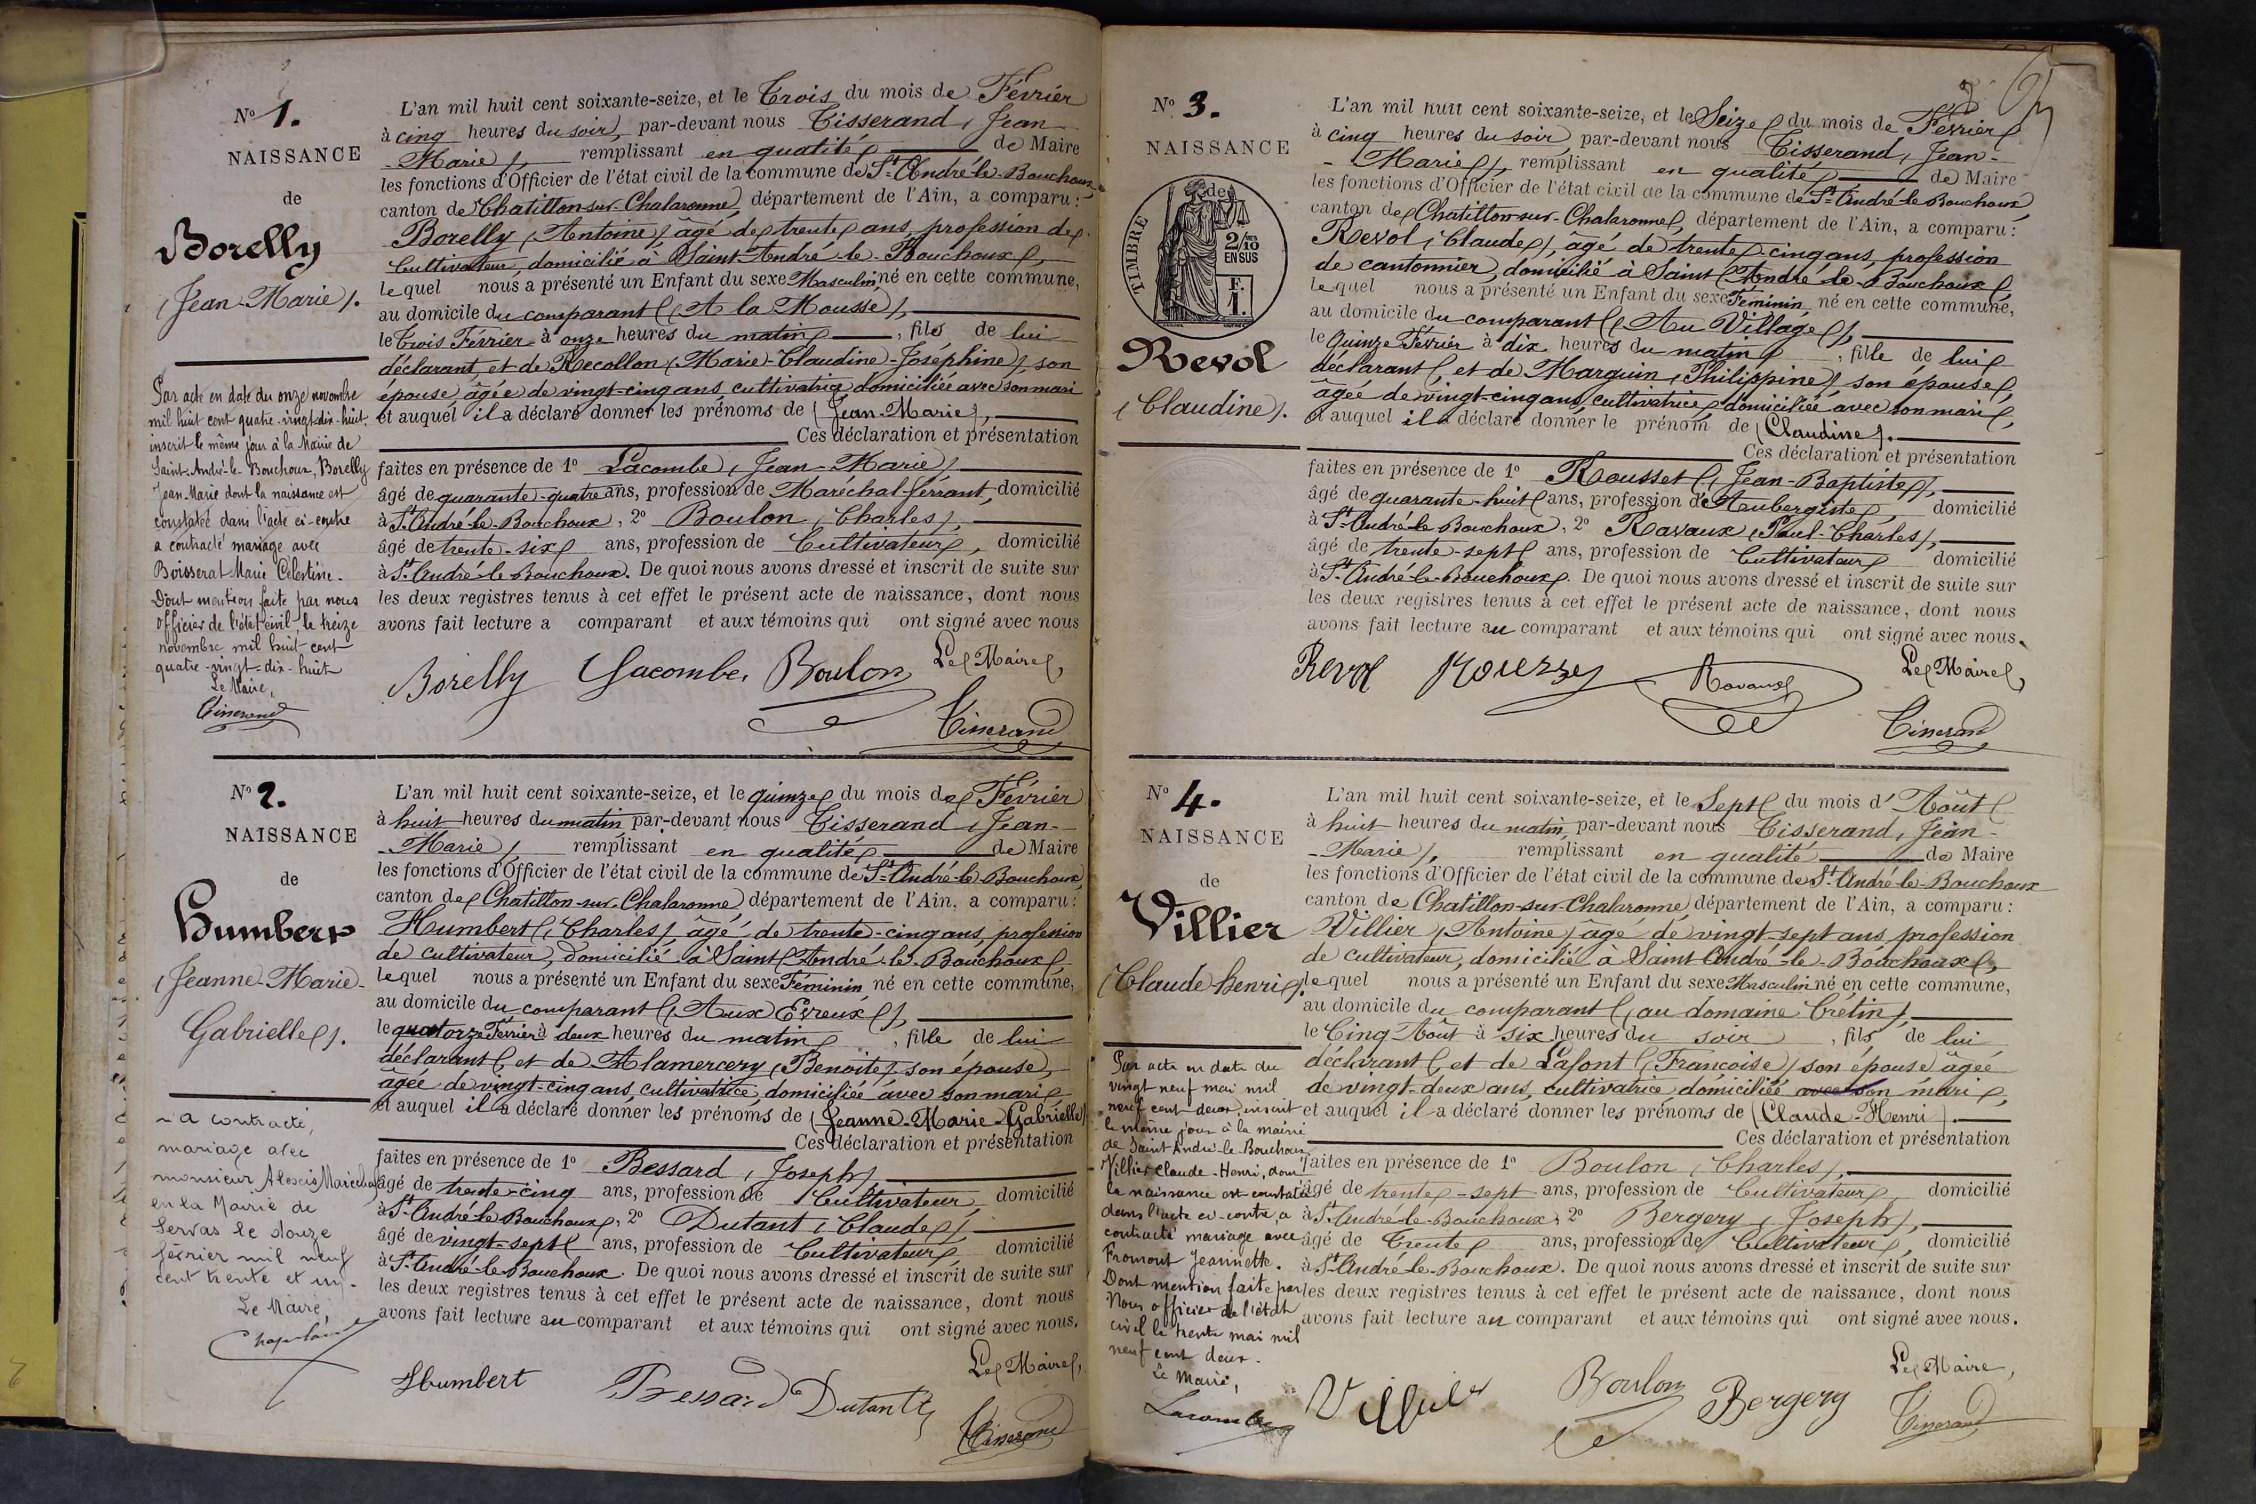 N° 1.
NAISSANCE
de
Borelly
(Jean-Marie).
Par acte en date du onze novembre
mil huit cent quatre-vingt-dix-huit,
inscrit le même jour à la Mairie de
Saint-André-le-Bouchoux, Borelly
Jean-Marie dont la naissance est
constatée dans l'acte ci-contre
a contracté mariage avec
Boisserat Marie Célestine.
Dont mention faite par nous
officier de l'état civil, le treize
novembre mil huit cent
quatre-vingt-dix-huit
Le Maire,
Tisserand
L'an mil huit cent soixante-seize, et le Trois du mois de Février
à cinq heures du soir, par-devant nous Tisserand, Jean
-Marie), remplissant en qualité de Maire
les fonctions d'Officier de l'état civil de la commune de St André-le-Bouchoux
canton de Chatillon-sur-Chalaronne, département de l'Ain, a comparu:
Borelly (Antoine) âgé de trente ans, profession de
Cultivateur, domicilié à Saint André-le-Bouchoux,
lequel nous a présenté un Enfant du sexe Masculin, né en cette commune,
au domicile du comparant (A la Mousse),
le Trois Février à onze heures du matin, fils de lui
déclarant, et de Recollon (Marie-Claudine-Joséphine), son
épouse, âgée de vingt-cinq ans, cultivatrice domiciliée avec son mari
et auquel il a déclaré donner les prénoms de (Jean-Marie),
Ces déclaration et présentation
faites en présence de 1° Lacombe, Jean-Marie)
âgé de quarante-quatre ans, profession de Maréchal-ferrant, domicilié
à St André-le-Bouchoux, 2° Boulon (Charles),
âgé de trente-six ans, profession de Cultivateur, domicilié
à St André-le-Bouchoux. De quoi nous avons dressé et inscrit de suite sur
les deux registres tenus à cet effet le présent acte de naissance, dont nous
avons fait lecture a comparant et aux témoins qui ont signé avec nous
Borelly Lacombe, Boulon Le Maire,
Tisserand
N° 2.
NAISSANCE
de
Humbert
(Jeanne-Marie-
Gabrielle).
- a contracté,
mariage avec
monsieur Alexis
en la Mairie de
Servas le douze
février mil neuf
cent trente et un.
Le Maire,
L'an mil huit cent soixante-seize, et le quinze du mois de Février
à huit heures du matin par-devant nous Tisserand, Jean-
-Marie), remplissant en qualité de Maire
les fonctions d'Officier de l'état civil de la commune de St André-le-Bouchoux,
canton de Chatillon-sur-Chalaronne) département de l'Ain, a comparu:
Humbert (Charles) âgé de trente-cinq ans, profession
de cultivateur, domicilié à Saint André-le-Bouchoux
lequel nous a présenté un Enfant du sexe Féminin né en cette commune,
au domicile du comparant (Aux Evreux),
le quatorze Février à deux heures du matin, fille de lui
déclarant et de Alamercery (Benoite) son épouse,
âgée de vingt-cinq ans, cultivatrice, domiciliée avec son mari
et auquel il a déclaré donner les prénoms de (Jeanne-Marie-Gabrielle)
Ces déclaration et présentation
faites en présence de 1° Bessard, Joseph)
âgé de trente-cinq ans, profession de Cultivateur, domicilié
à St André-le-Bouchoux, 2° Dutant (Claude),
âgé de vingt-sept ans, profession de Cultivateur, domicilié
à St André-le-Bouchoux. De quoi nous avons dressé et inscrit de suite sur
les deux registres tenus à cet effet le présent acte de naissance, dont nous
avons fait lecture au comparant et aux témoins qui ont signé avec nous.
Le Maire,
Humbert Bessard Dutant
Tisserand
N° 3.
NAISSANCE
de
TIMBRE
2/10
EN SUS
F.
1.
Revol
(Claudine).
L'an mil huit cent soixante-seize, et le Seize du mois de Février
à cinq heures du soir, par-devant nous Tisserand, Jean-
-Marie), remplissant en qualité de Maire
les fonctions d'Officier de l'état civil de la commune de St André-le-Bouchoux,
canton de Chatillon-sur-Chalaronne, département de l'Ain, a comparu:
Revol (Claude), âgé de trente-cinq ans, profession
de cantonnier, domicilié à Saint André-le-Bouchoux,
lequel nous a présenté un Enfant du sexe Féminin, né en cette commune,
au domicile du comparant (Au Village),
le Quinze Février à dix heures du matin, fille de lui
déclarant, et de Marguin (Philippine), son épouse,
âgée de vingt-cinq ans, cultivatrice, domiciliée avec son mari,
et auquel il a déclaré donner le prénom de (Claudine).
Ces déclaration et présentation
faites en présence de 1° Rousset, Jean-Baptiste),
âgé de quarante-huit ans, profession d'Aubergiste, domicilié
à St André-le-Bouchoux, 2° Ravaux (Paul-Charles),
âgé de trente-sept ans, profession de Cultivateur domicilié
à St André-le-Bouchoux. De quoi nous avons dressé et inscrit de suite sur
les deux registres tenus à cet effet le présent acte de naissance, dont nous
avons fait lecture au comparant et aux témoins qui ont signé avec nous.
Revol Ravaux Le Maire,
Tisserand
N° 4.
NAISSANCE
de
Villier
(Claude Henri).
Par acte en date du
vingt neuf mai mil
neuf cent deux, inscrit
le même jour à la mairie
de Saint André-le-Bouchoux
Villier Claude-Henri, dont
la naissance est constatée
dans l'acte ci-contre, a
contracté mariage avec
Fromont Jeannette.
Dont mention faite par
Nous officier de l'état
civil le trente mai mil
neuf cent deux.
Le Maire,
Lacombe
L'an mil huit cent soixante-seize, et le Sept du mois d'Août
à huit heures du matin, par-devant nous Tisserand, Jean-
-Marie), remplissant en qualité de Maire
les fonctions d'Officier de l'état civil de la commune de St André-le-Bouchoux
canton de Chatillon-sur-Chalaronne) département de l'Ain, a comparu:
Villier (Antoine) âgé de vingt-sept ans, profession
de cultivateur, domicilié à Saint André-le-Bouchoux,
lequel nous a présenté un Enfant du sexe Masculin né en cette commune,
au domicile du comparant (au domaine Crétin),
le Cinq Août à six heures du soir, fils de lui
déclarant et de Lafont (Françoise) son épouse âgée
de vingt-deux ans, cultivatrice, domiciliée avec son mari,
et auquel il a déclaré donner les prénoms de (Claude-Henri).
Ces déclaration et présentation
faites en présence de 1° Boulon (Charles),
âgé de trente-sept ans, profession de Cultivateur, domicilié
à St André-le-Bouchoux, 2° Bergery (Joseph),
âgé de Trente ans, profession de Cultivateur, domicilié
à St André-le-Bouchoux. De quoi nous avons dressé et inscrit de suite sur
les deux registres tenus à cet effet le présent acte de naissance, dont nous
avons fait lecture au comparant et aux témoins qui ont signé avec nous.
Le Maire,
Villier Boulon Bergery Tisserand